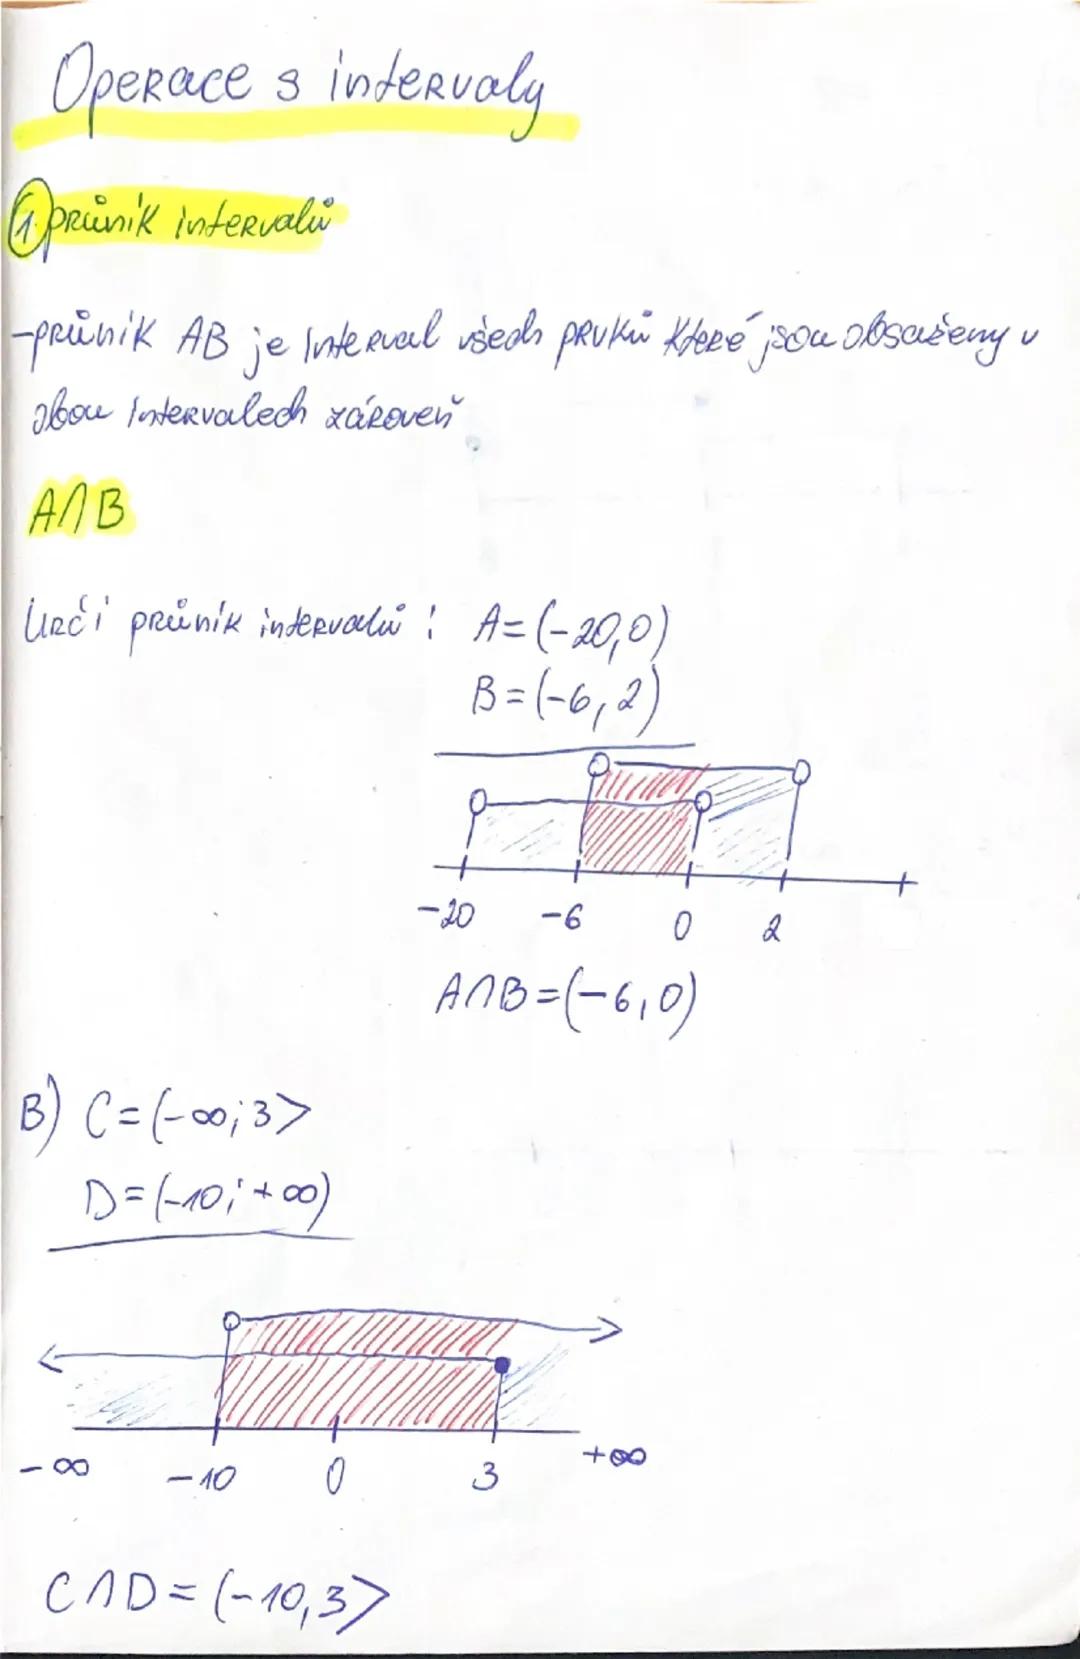 Operace s intervaly
1. průnik intervalů
-průnik AB je Interval všech prvků které jsou obsaženy v
obou Intervalech zároveň
A∩B
Urči průnik intervalů: A=(-20,0)
B=(-6,2)
-20 -6 0 2
A∩B=(-6,0)
B) C=(-∞;3>
D=(-10;+∞)
-∞ -10 0 3 +∞
C∩D=(-10,3>